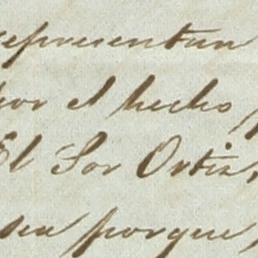 representan
por el hecho
El Sor Ortiz,
sea porque,